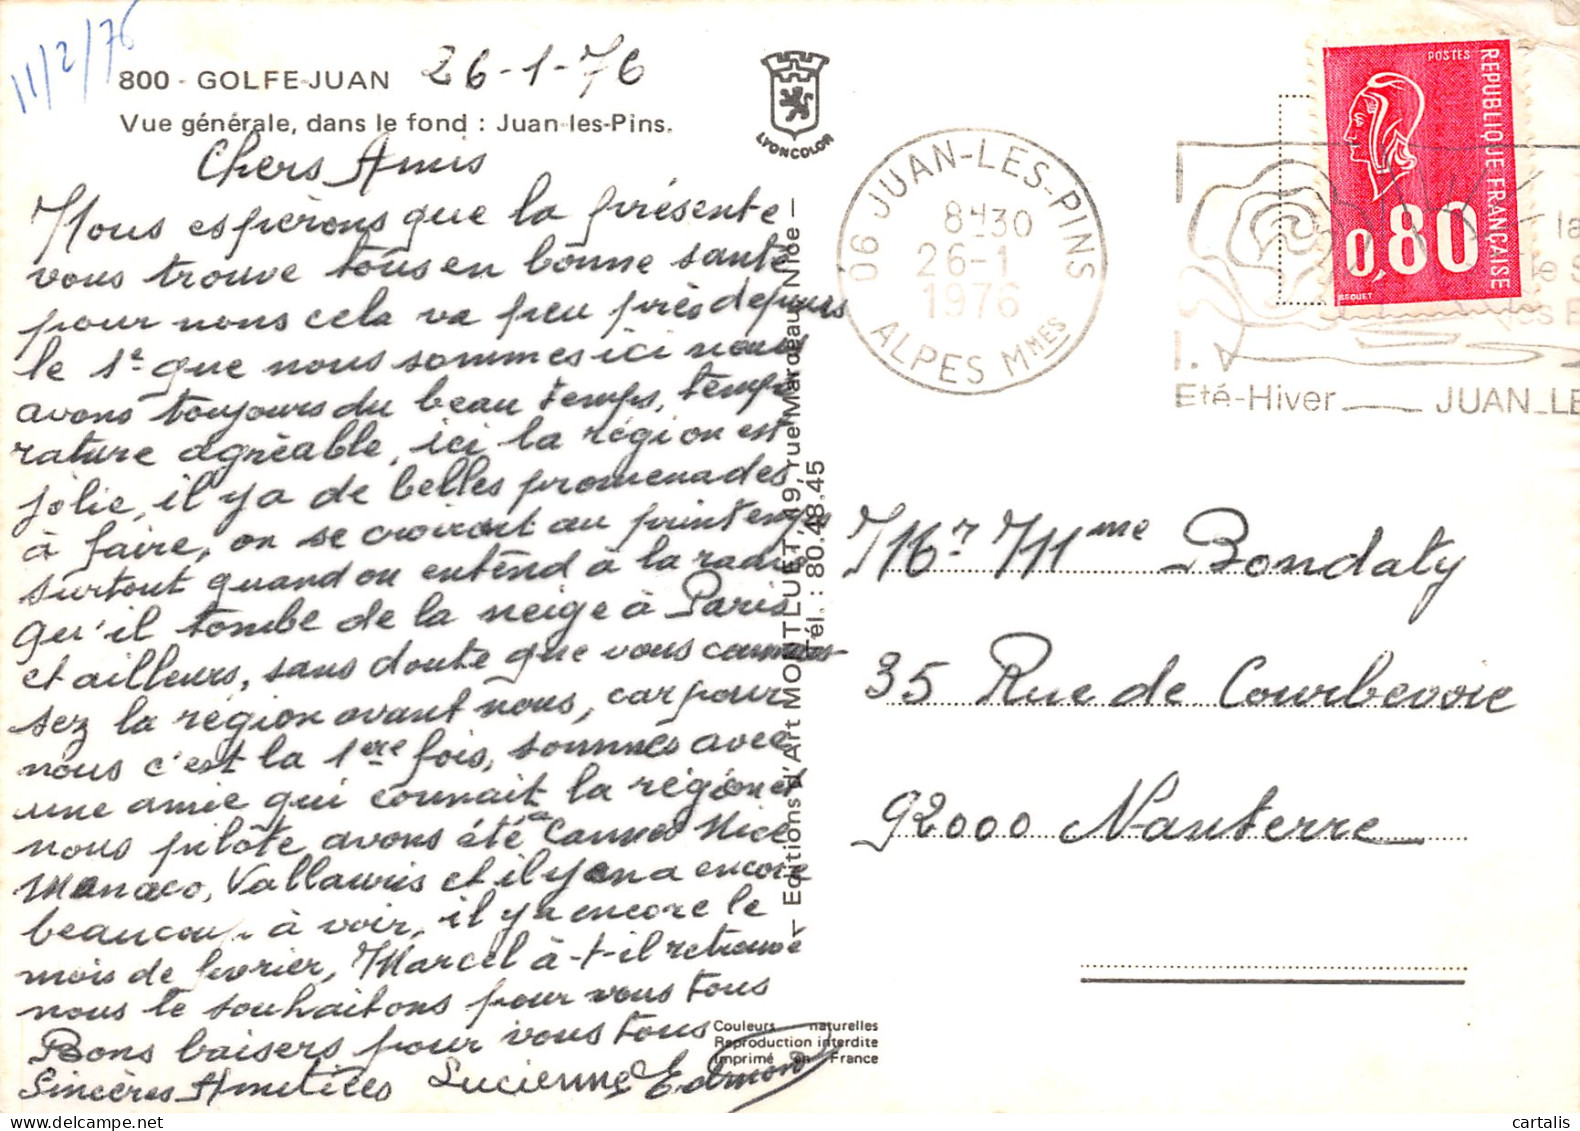 11/2/76
800 - GOLFE-JUAN 26-1-76
Vue générale, dans le fond : Juan-les-Pins.
LYONCOLOR
Chers Amis
Nous espérons que la présente
vous trouve tous en bonne santé
pour nous cela va peu près depuis
le 1er que nous sommes ici nous
avons toujours du beau temps, tempé
rature agréable, ici la région est
jolie, il y a de belles promenades
à faire, on se croirait au printemps
surtout quand on entend à la radio
qu'il tombe de la neige à Paris
et ailleurs, sans doute que vous connais-
sez la région avant nous, car pour
nous c'est la 1ère fois, sommes avec
une amie qui connait la région et
nous pilote avons été à Cannes Nice
Monaco, Vallauris et il y en a encore
beaucoup à voir, il y a encore le
mois de fevrier, Marcel à-t-il retrouvé
nous le souhaitons pour vous tous
Bons baisers pour vous tous
Sincères Amitiés Lucienne Edmond
Editions d'Art MONTLUET, 19, rue Marceau, Nice -
Tél. : 80.48.45
Couleurs naturelles
Reproduction interdite
Imprimé en France
06 JUAN-LES-PINS
8H30
26-1
1976
ALPES MMES
POSTES
REPUBLIQUE FRANÇAISE
0,80
BEQUET
la
le S
Eté-Hiver JUAN_LE
Mr Mme Bondaty
35 Rue de Courbevoie
92000 Nanterre
cartalis